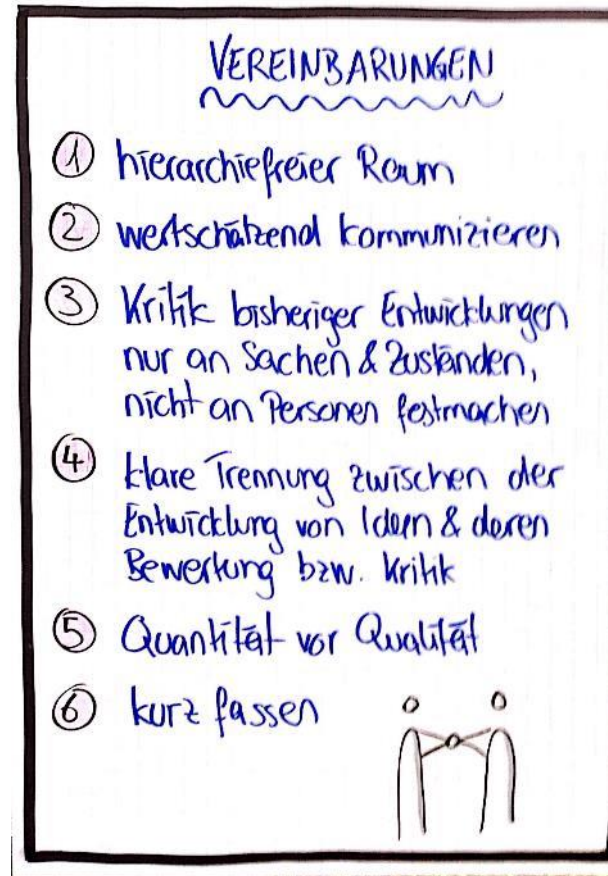 VEREINBARUNGEN
1 hierarchiefreier Raum
2 wertschätzend kommunizieren
3 Kritik bisheriger Entwicklungen
nur an Sachen & Zuständen,
nicht an Personen festmachen
4 klare Trennung zwischen der
Entwicklung von Ideen & deren
Bewertung bzw. Kritik
5 Quantität vor Qualität
6 kurz fassen